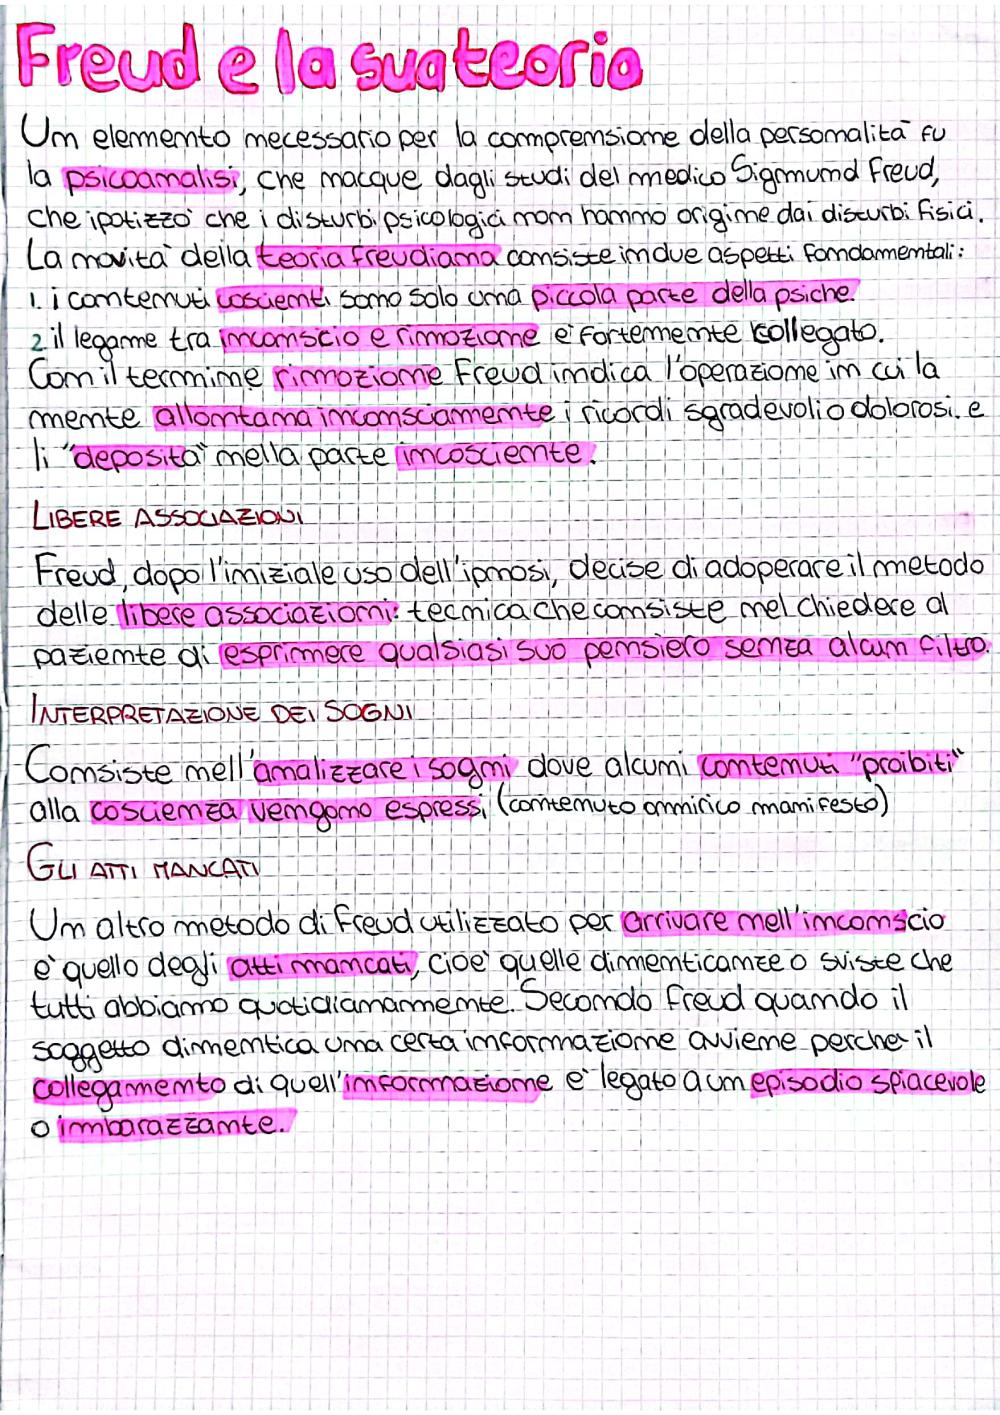 Freud e la sua teoria
Un elemento necessario per la comprensione della personalità fu
la psicoanalisi, che nacque dagli studi del medico Sigmund Freud,
che ipotizzò che i disturbi psicologici non hanno origine dai disturbi fisici.
La novità della teoria freudiana consiste in due aspetti fondamentali:
1. i contenuti coscienti sono solo una piccola parte della psiche.
2. il legame tra inconscio e rimozione è fortemente collegato.
Con il termine rimozione Freud indica l'operazione in cui la
mente allontana inconsciamente i ricordi sgradevoli o dolorosi. e
li "deposita" nella parte incosciente.
LIBERE ASSOCIAZIONI
Freud, dopo l'iniziale uso dell'ipnosi, decise di adoperare il metodo
delle libere associazioni: tecnica che consiste nel chiedere al
paziente di esprimere qualsiasi suo pensiero senza alcun filtro.
INTERPRETAZIONE DEI SOGNI
Consiste nell'analizzare i sogni dove alcuni contenuti "proibiti"
alla coscienza vengono espressi, (contenuto onnirico manifesto)
GLI ATTI MANCATI
Un altro metodo di Freud utilizzato per arrivare nell'inconscio
è quello degli atti mancati, cioè quelle dimenticanze o sviste che
tutti abbiamo quotidianamente. Secondo Freud quando il
soggetto dimentica una certa informazione avviene perchè il
collegamento di quell'informazione è legato a un episodio spiacevole
o imbarazzante.